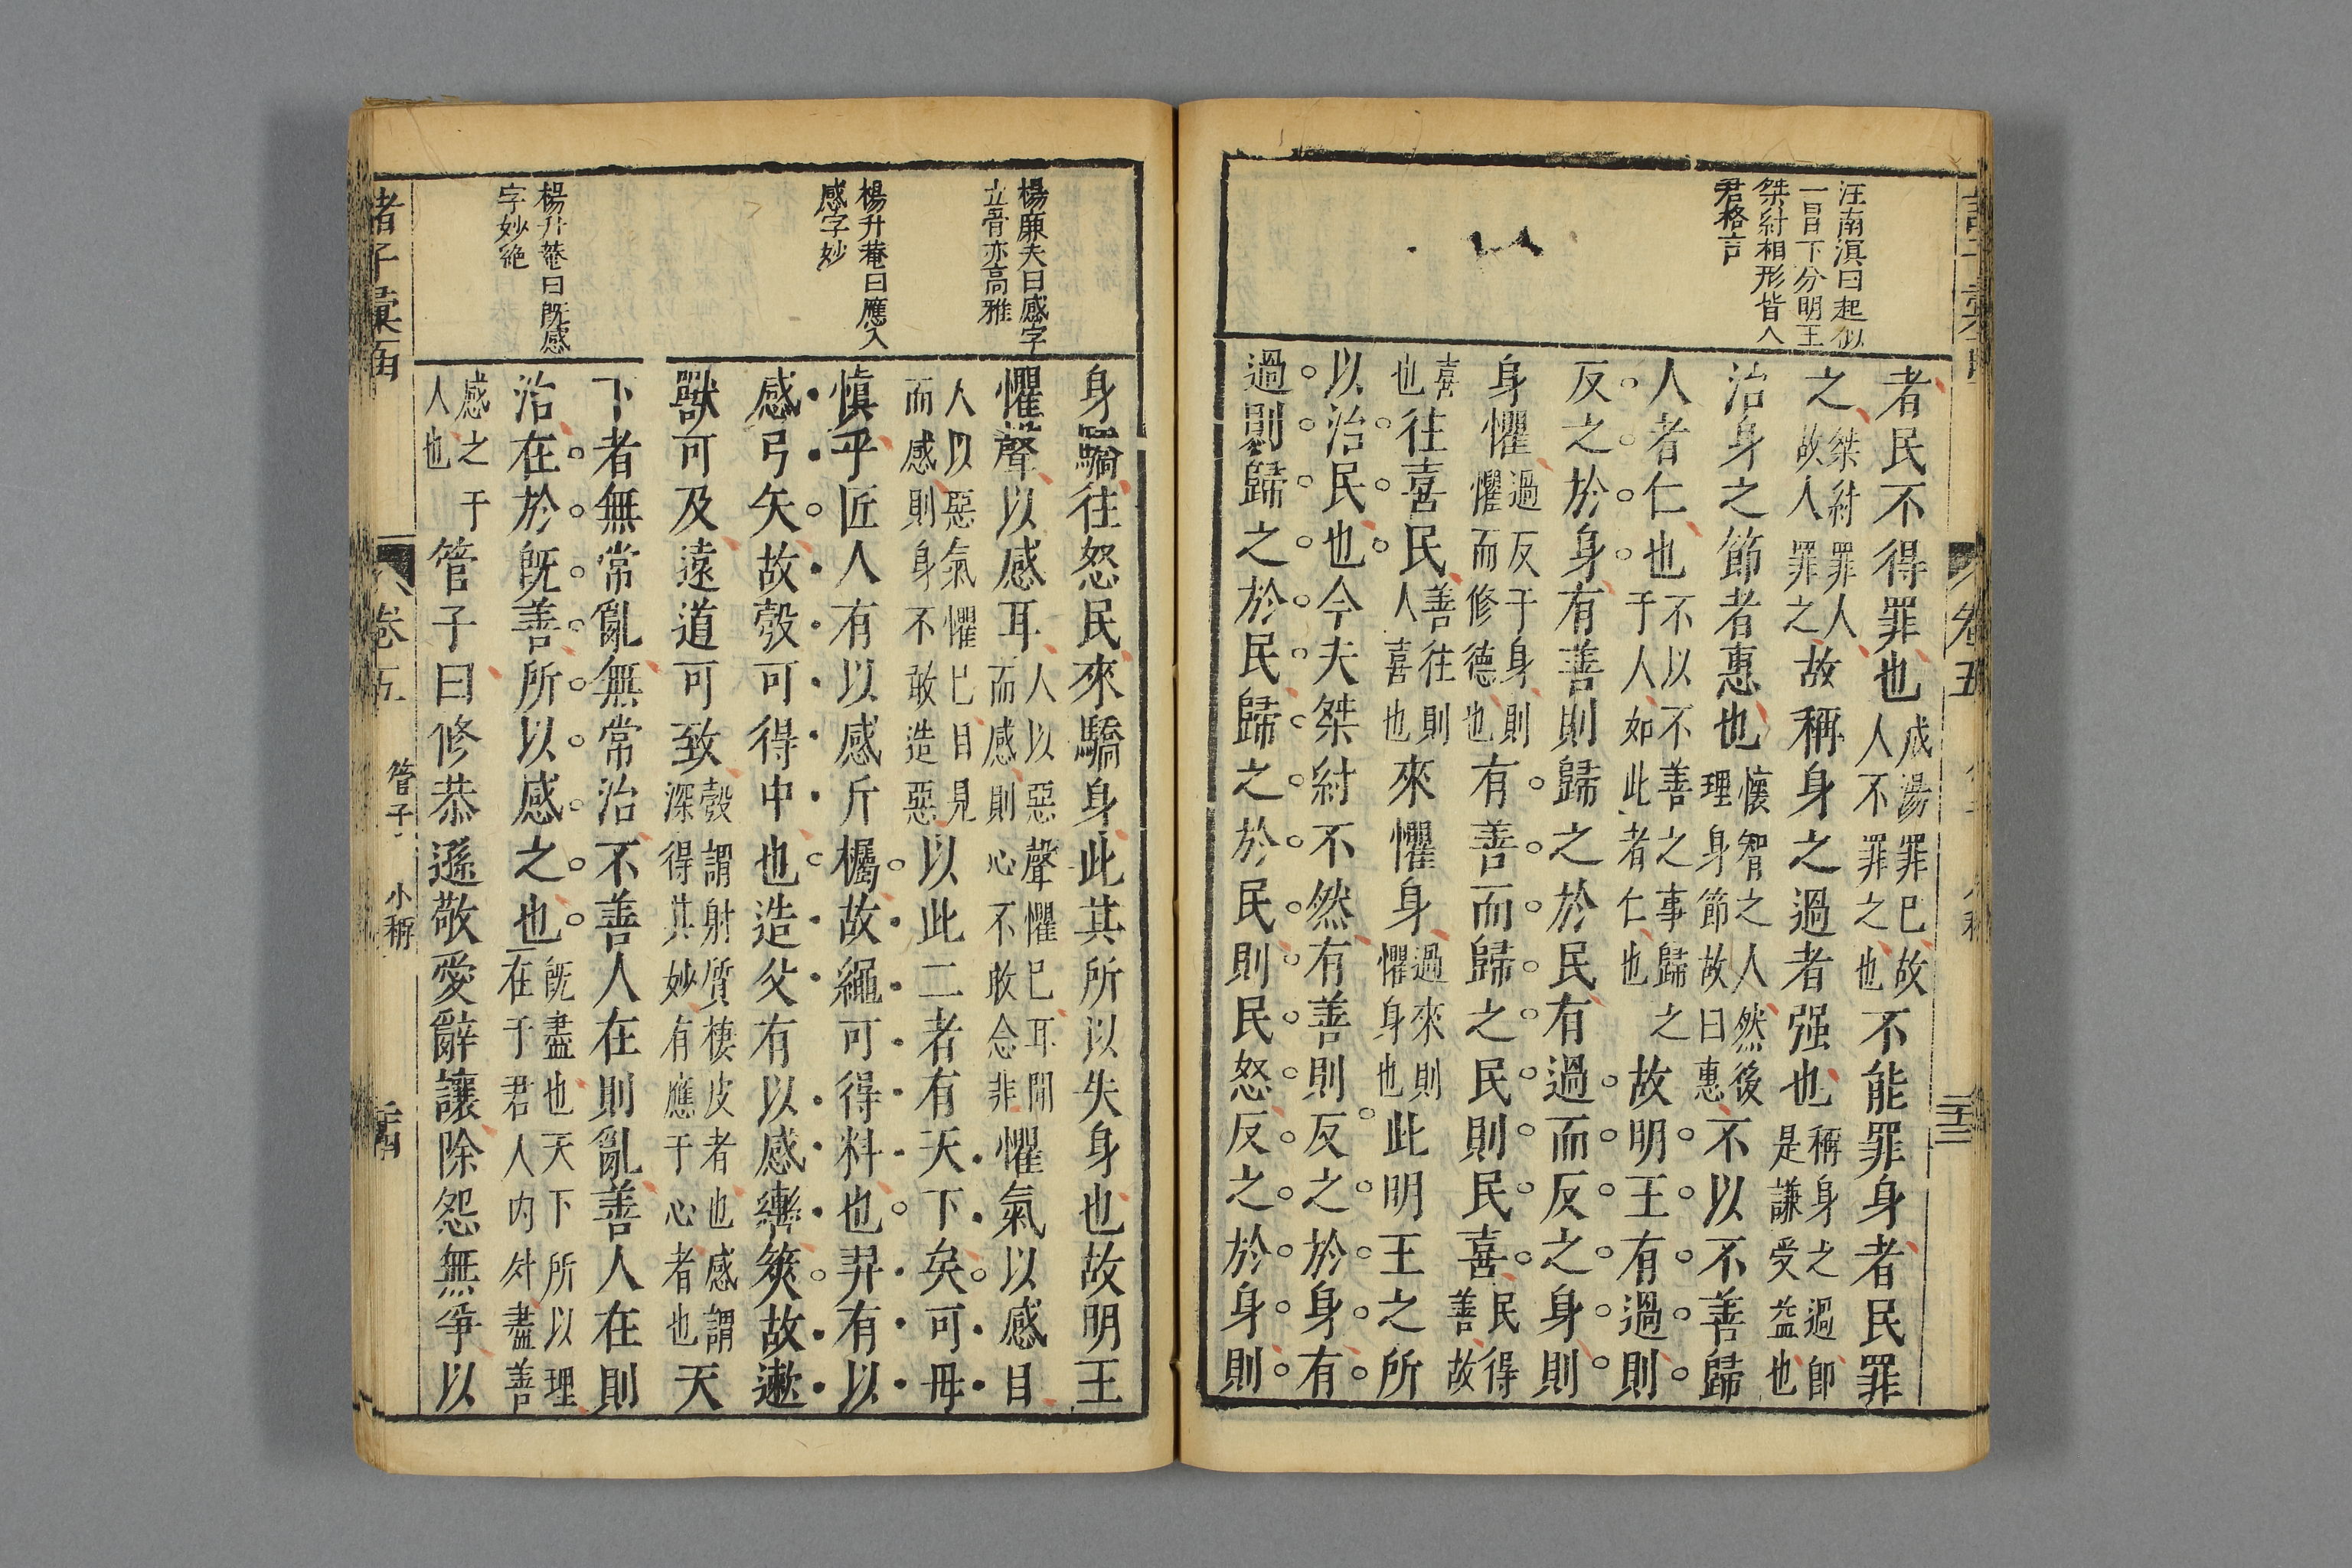 汪南溟曰起似
一冒下分明王
桀紂相形皆人
君格言
卷五
者民不得罪也
成湯罪巳故
人不罪之也
不能罪身者民罪
之
桀紂罪人
故人罪之
故稱身之過者强也
稱身之過卽
是謙受益也
治身之節者惠也
懷智之人然後
理身節故曰惠
不以不善歸
人者仁也
不以不善之事歸之
于人如此者仁也
故明王有過則
反之於身有善則歸之於民有過而反之身則
身懼
過反于身則
懼而修德也
有善而歸之民則民喜
民得
善故
喜
也
往喜民
善往則
人喜也
來懼身
過來則
懼身也
此明王之所
以治民也今夫桀紂不然有善則反之於身有
過則歸之於民歸之於民則民怒反之於身則
楊廉夫曰感字
立骨亦高雅
楊升菴曰應入
感字妙
楊升菴曰旣感
字妙絶
身驕往怒民來驕身此其所以失身也故明王
懼聲以感耳
人以惡聲懼巳耳聞
而感則心不敢念非
懼氣以感目
人以惡氣懼巳目見
而感則身不敢造惡
以此二者有天下矣可毋
慎乎匠人有以感斤欘故繩可得料也羿有以
感弓矢故彀可得中也造父有以感轡筴故遬
獸可及遠道可致
彀謂射質棲皮者也感謂
深得其妙有應于心者也
天
下者無常亂無常治不善人在則亂善人在則
治在於旣善所以感之也
旣盡也天下所以理
在于君人内外盡善
感之于
人也
管子曰修恭遜敬愛辭讓除怨無爭以
諸子彙函
卷五
管子
小稱